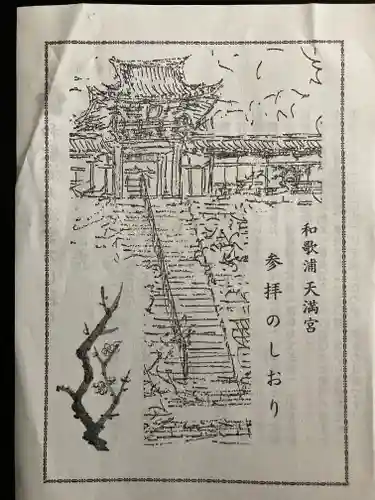 和歌浦天満宮
参拝のしおり